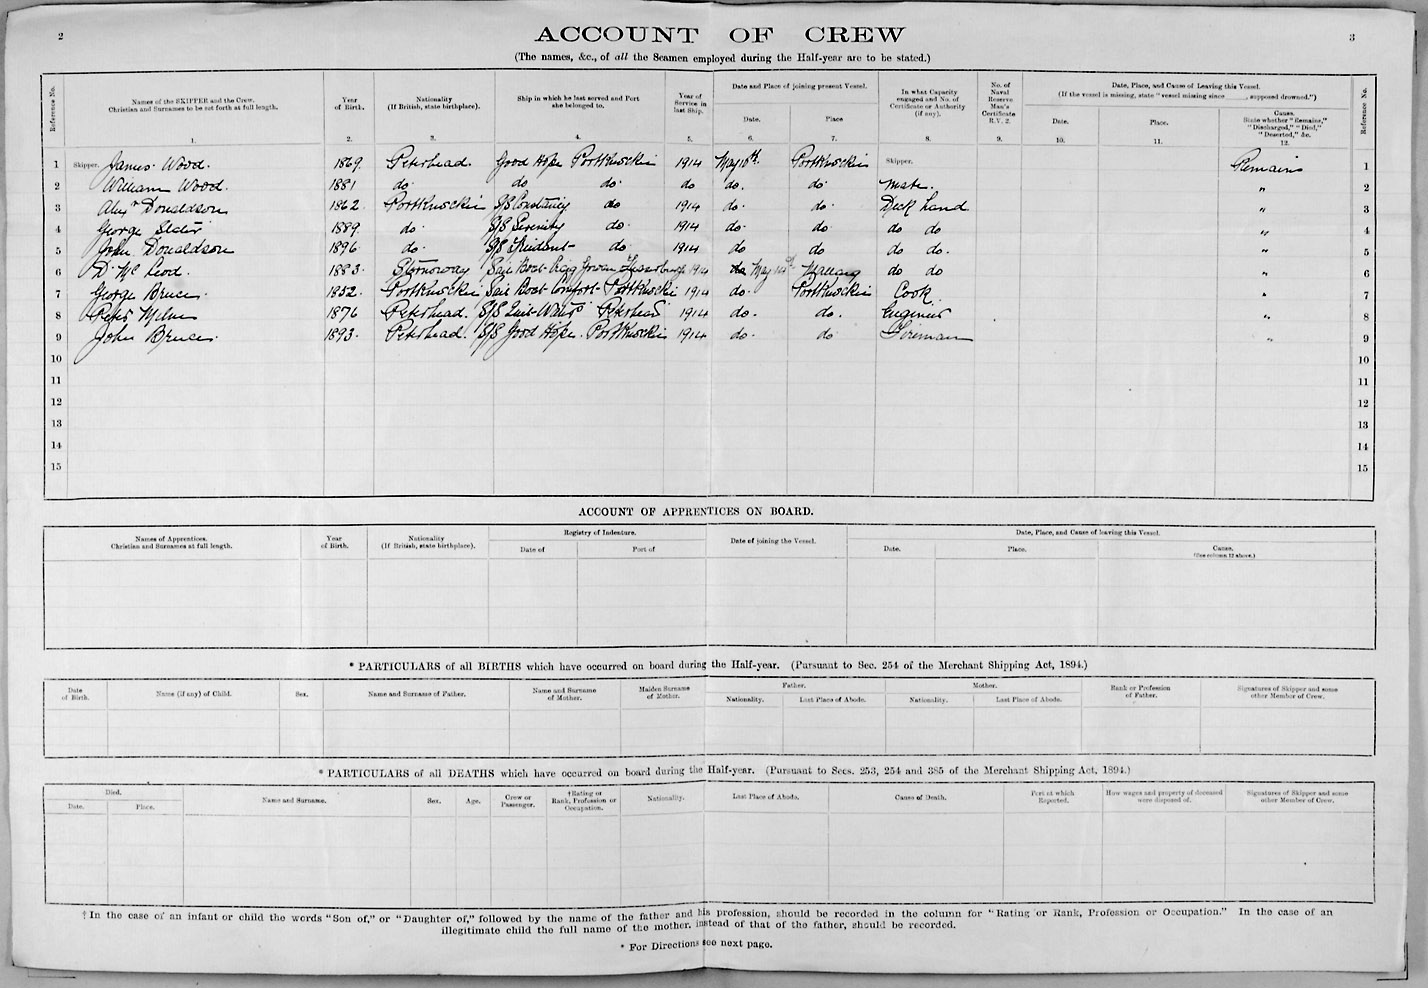 2
ACCOUNT OF CREW
3
(The names, &c., of all the Seamen employed during the Half-year are to be stated.)
Reference No.
Names of the SKIPPER and the Crew.
Christian and Surnames to be set forth at full length.
1.
Year
of Birth.
2.
Nationality
(If British, state birthplace).
3.
Ship in which he last served and Port
she belonged to.
4.
Year of
Service in
last Ship.
5.
Date and Place of joining present Vessel.
Date.
6.
Place
7.
In what Capacity
engaged and No. of
Certificate or Authority
(if any).
8.
No. of
Naval
Reserve
Man's
Certificate
R.V. 2.
9.
Date, Place, and Cause of Leaving this Vessel.
(If the vessel is missing, state "vessel missing since ____, supposed drowned.")
Date.
10.
Place.
11.
Cause.
State whether "Remains,"
"Discharged," "Died,"
"Deserted," &c.
12.
Reference No.
1 Skipper. James Wood. 1869. Peterhead. Good Hope Portknockie 1914 May 10th. Portknockie Skipper. Remains 1
2 William Wood. 1881 do do do do do. do Mate. " 2
3 Alexr Donaldson 1862 Portknockie S/S Constancy do 1914 do. do. Deck hand " 3
4 George Slater 1889. do. S/S Serenity do. 1914 do. do. do do " 4
5 John Donaldson 1896. do. S/S Trident do. 1914 do do do do. " 5
6 D. McLeod. 1883. Stornoway Sail Boat 1914 May Mallaig do do " 6
7 George Bruce. 1852. Portknockie Sail Boat Comfort Portknockie 1914 do. Portknockie Cook. " 7
8 Peter Milne 1876 Peterhead. S/S Peterhead 1914 do. do. Engineer " 8
9 John Bruce. 1893. Peterhead. S/S Good Hope. Portknockie 1914 do. do Fireman " 9
10 10
11 11
12 12
13 13
14 14
15 15
ACCOUNT OF APPRENTICES ON BOARD.
Names of Apprentices.
Christian and Surnames at full length.
Year
of Birth.
Nationality
(If British, state birthplace).
Registry of Indenture.
Date of
Port of
Date of joining the Vessel.
Date, Place, and Cause of leaving this Vessel.
Date.
Place.
Cause.
(See column 12 above.)
* PARTICULARS of all BIRTHS which have occurred on board during the Half-year. (Pursuant to Sec. 254 of the Merchant Shipping Act, 1894.)
Date
of Birth.
Name (if any) of Child.
Sex.
Name and Surname of Father.
Name and Surname
of Mother.
Maiden Surname
of Mother.
Father.
Nationality.
Last Place of Abode.
Mother.
Nationality.
Last Place of Abode.
Rank or Profession
of Father.
Signatures of Skipper and some
other Member of Crew.
* PARTICULARS of all DEATHS which have occurred on board during the Half-year. (Pursuant to Secs. 253, 254 and 385 of the Merchant Shipping Act, 1894.)
Died.
Date.
Place.
Name and Surname.
Sex.
Age.
Crew or
Passenger.
†Rating or
Rank, Profession or
Occupation.
Nationality.
Last Place of Abode.
Cause of Death.
Port at which
Reported.
How wages and property of deceased
were disposed of.
Signatures of Skipper and some
other Member of Crew.
† In the case of an infant or child the words "Son of," or "Daughter of," followed by the name of the father and his profession, should be recorded in the column for "Rating or Rank, Profession or Occupation." In the case of an
illegitimate child the full name of the mother, instead of that of the father, should be recorded.
* For Directions see next page.